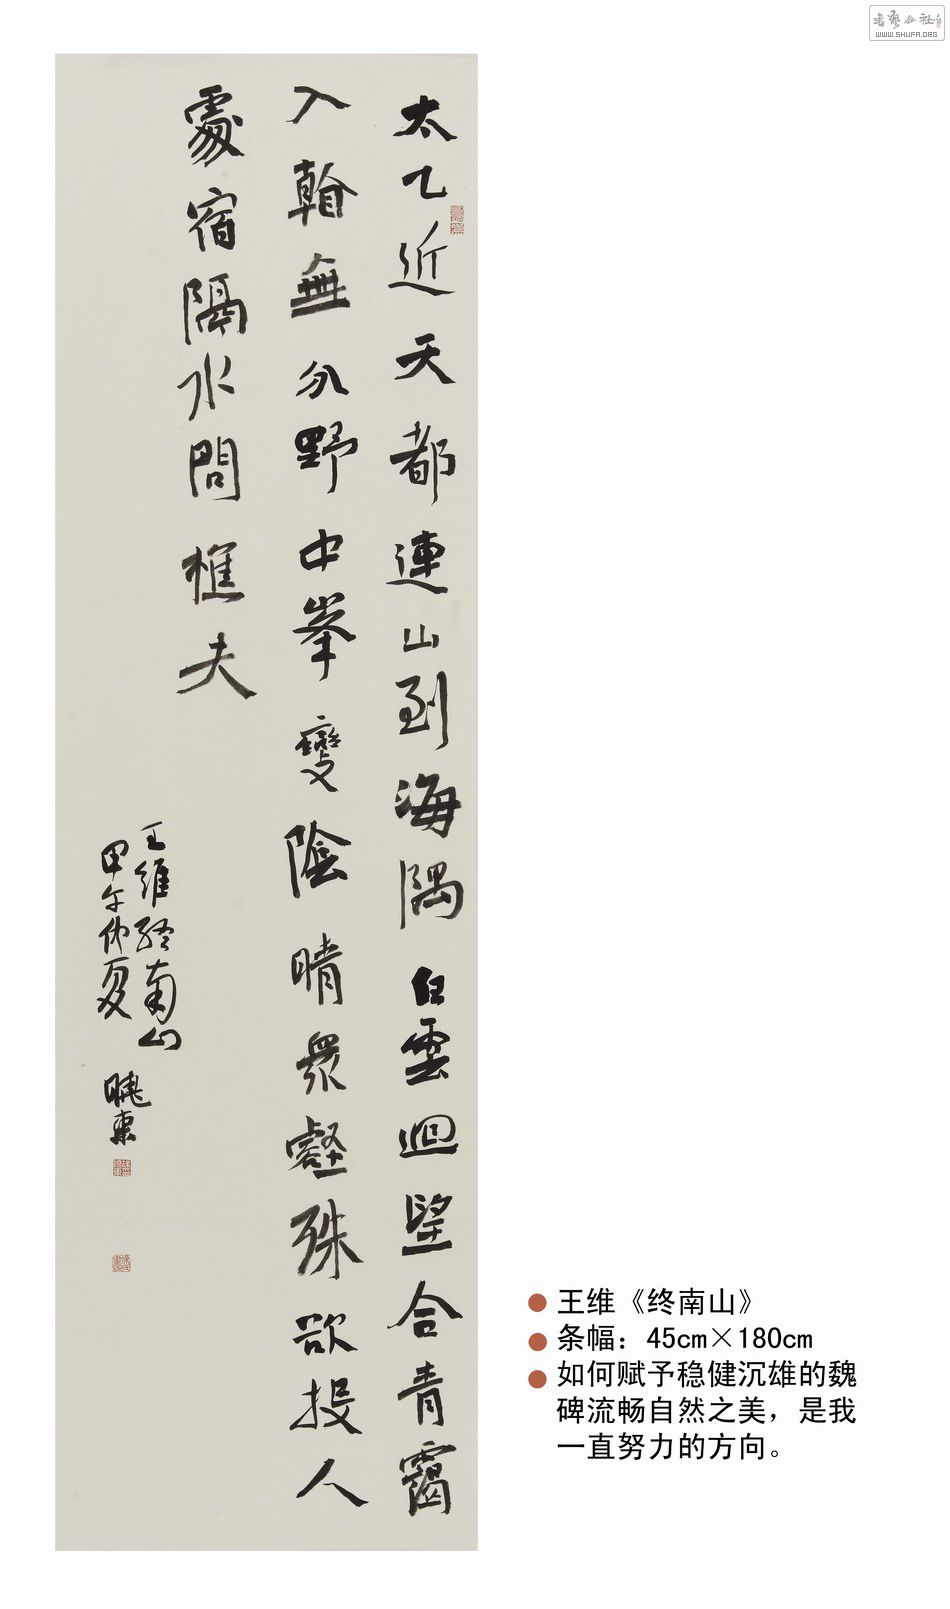 太乙近天都連山到海隅白雲迴望合青靄
入看無分野中峯變陰晴衆壑殊欲投人
處宿隔水問樵夫
王維終南山
甲午仲夏 曉東
王维《终南山》
条幅：45cm×180cm
如何赋予稳健沉雄的魏
碑流畅自然之美，是我
一直努力的方向。
书艺公社
WWW.SHUFA.ORG